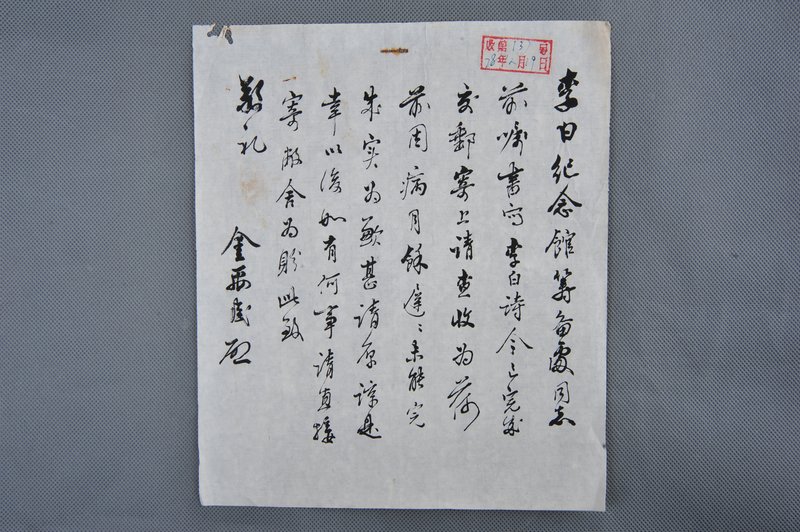 李白纪念馆筹备处同志
前嘱書写李白诗今已完成
交郵寄上请查收为荷
前因病月餘遲遲未能完
成实为歉甚请原谅是
幸以後如有何事请直接
寄敝舍为盼此致
敬礼
金
启
收 第 137 号
78年 月19日